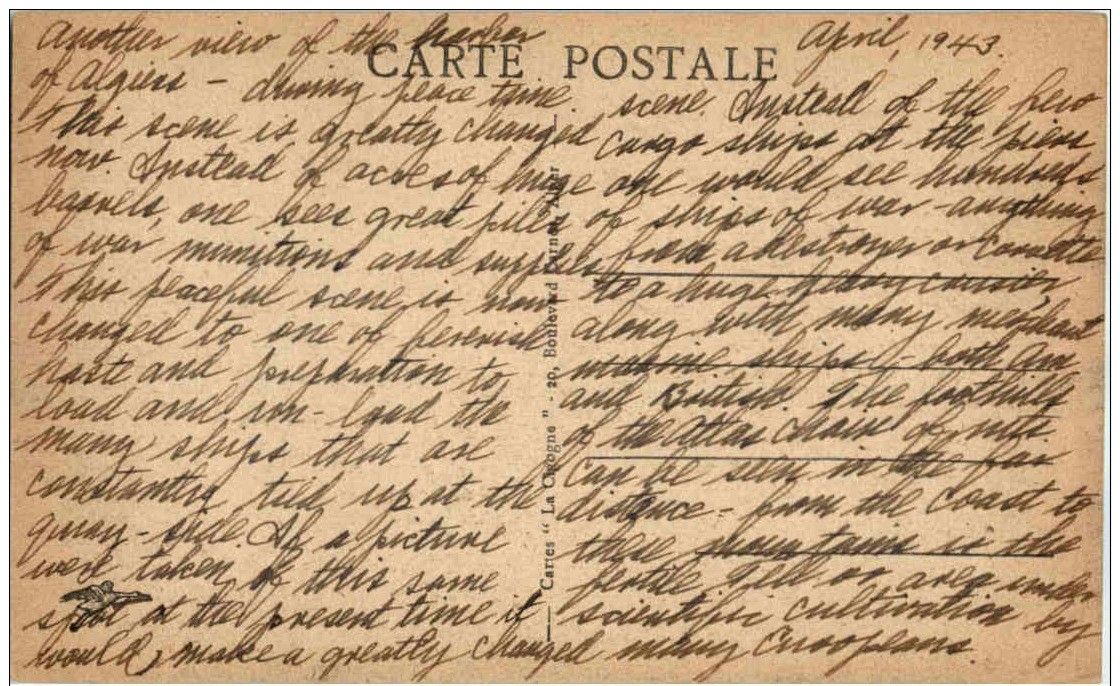 Another view of the harbor
of Algiers - during peace time.
This scene is greatly changed
now. Instead of acres of huge
barrels, one sees great piles
of war munitions and supplies
this peaceful scene is now
changed to one of feverish
haste and preparation to
load and un-load the
many ships that are
constantly tied up at the
quay-side. If a picture
were taken of this same
spot at the present time it
would make a greatly changed
CARTE POSTALE
April, 1943.
scene. Instead of the few
cargo ships at the piers
one would see hundreds
of ships of war - anything
from a destroyer or corvette
to a huge heavy cruiser,
along with many merchant
marine ships - both Am
and British. The foothills
of the Atlas chain of mts.
can be seen in the far
distance - from the coast to
these mountains is the
fertile Tell or area under
scientific cultivation by
many Europeans.
Cartes "La Cigogne" - 20, Boulevard